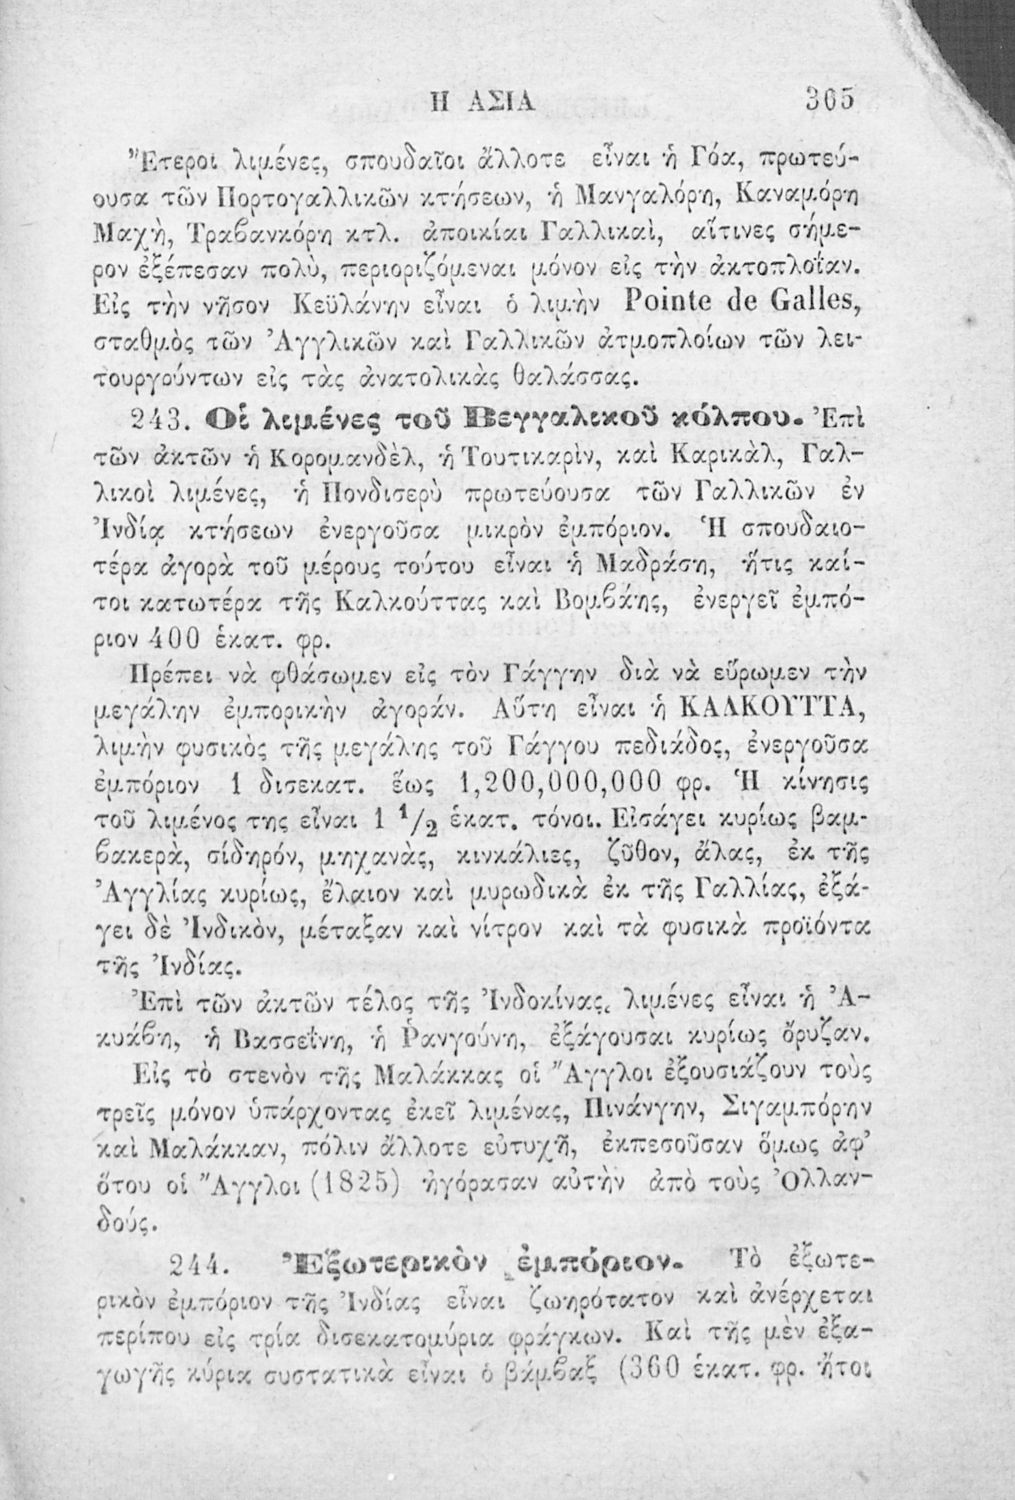 Η ΑΣΙΑ 305
Ἕτεροι λιμένες, σπουδαῖοι ἄλλοτε εἶναι ἡ Γόα, πρωτεύ-
ουσα τῶν Πορτογαλλικῶν κτήσεων, ἡ Μανγαλόρη, Καναμόρη
Μαχὴ, Τραβανκόρη κτλ. ἀποικίαι Γαλλικαὶ, αἵτινες σήμε-
ρον ἐξέπεσαν πολὺ, περιοριζόμεναι μόνον εἰς τὴν ἀκτοπλοΐαν.
Εἰς τὴν νῆσον Κεϋλάνην εἶναι ὁ λιμὴν Pointe de Galles,
σταθμὸς τῶν Ἀγγλικῶν καὶ Γαλλικῶν ἀτμοπλοίων τῶν λει-
τουργούντων εἰς τὰς ἀνατολικὰς θαλάσσας.
243. Οἱ λιμένες τοῦ Βεγγαλικοῦ κόλπου. Ἐπὶ
τῶν ἀκτῶν ἡ Κορομανδὲλ, ἡ Τουτικαρὶν, καὶ Καρικὰλ, Γαλ-
λικοὶ λιμένες, ἡ Πονδισερὺ πρωτεύουσα τῶν Γαλλικῶν ἐν
Ἰνδίᾳ κτήσεων ἐνεργοῦσα μικρὸν ἐμπόριον. Ἡ σπουδαιο-
τέρα ἀγορὰ τοῦ μέρους τούτου εἶναι ἡ Μαδράση, ἥτις καί-
τοι κατωτέρα τῆς Καλκούττας καὶ Βομβάης, ἐνεργεῖ ἐμπό-
ριον 400 ἑκατ. φρ.
Πρέπει νὰ φθάσωμεν εἰς τὸν Γάγγην διὰ νὰ εὕρωμεν τὴν
μεγάλην ἐμπορικὴν ἀγοράν. Αὕτη εἶναι ἡ ΚΑΛΚΟΥΤΤΑ,
λιμὴν φυσικὸς τῆς μεγάλης τοῦ Γάγγου πεδιάδος, ἐνεργοῦσα
ἐμπόριον 1 δισεκατ. ἕως 1,200,000,000 φρ. Ἡ κίνησις
τοῦ λιμένος της εἶναι 1 1/2 ἑκατ. τόνοι. Εἰσάγει κυρίως βαμ-
βακερὰ, σίδηρόν, μηχανὰς, κινκάλιες, ζῦθον, ἅλας, ἐκ τῆς
Ἀγγλίας κυρίως, ἔλαιον καὶ μυρωδικὰ ἐκ τῆς Γαλλίας, ἐξά-
γει δὲ Ἰνδικὸν, μέταξαν καὶ νίτρον καὶ τὰ φυσικὰ προϊόντα
τῆς Ἰνδίας.
Ἐπὶ τῶν ἀκτῶν τέλος τῆς Ἰνδοκίνας, λιμένες εἶναι ἡ Ἀ-
κυάβη, ἡ Βασσεΐνη, ἡ Ῥανγούνη, ἐξάγουσαι κυρίως ὄρυζαν.
Εἰς τὸ στενὸν τῆς Μαλάκκας οἱ Ἄγγλοι ἐξουσιάζουν τοὺς
τρεῖς μόνον ὑπάρχοντας ἐκεῖ λιμένας, Πινάνγην, Σιγαμπόρην
καὶ Μαλάκκαν, πόλιν ἄλλοτε εὐτυχῆ, ἐκπεσοῦσαν ὅμως ἀφ’
ὅτου οἱ Ἄγγλοι (1825) ἠγόρασαν αὐτὴν ἀπὸ τοὺς Ὀλλαν-
δούς.
244. Ἐξωτερικὸν ἐμπόριον. Τὸ ἐξωτε-
ρικὸν ἐμπόριον τῆς Ἰνδίας εἶναι ζωηρότατον καὶ ἀνέρχεται
περίπου εἰς τρία δισεκατομύρια φράγκων. Καὶ τῆς μὲν ἐξα-
γωγῆς κύρια συστατικὰ εἶναι ὁ βάμβαξ (360 ἑκατ. φρ. ἤτοι